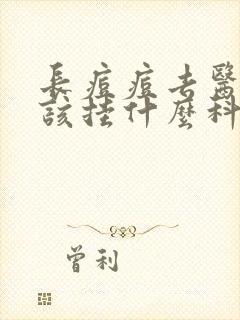 長痘痘去醫
該挂什麼科
曾利